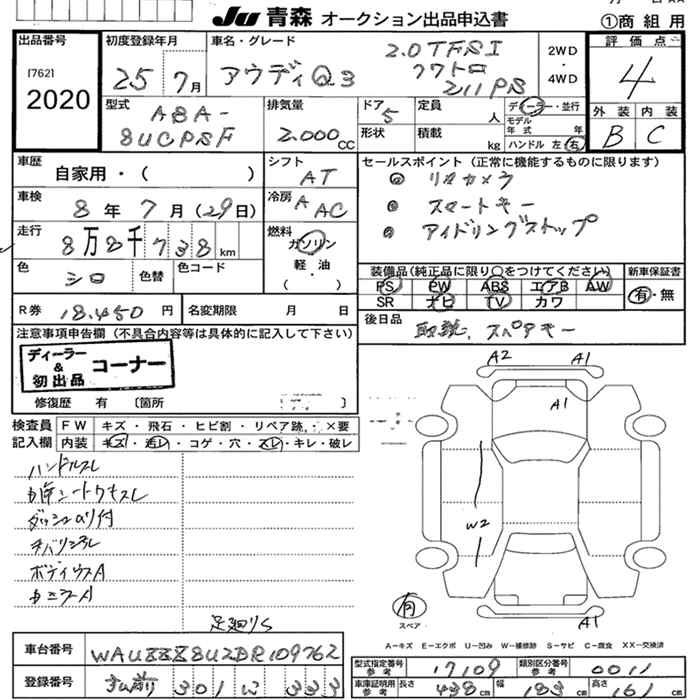 JU 青森 オークション出品申込書
①商 組 用
出品番号
[762]
2020
初度登録年月
25年 7月
車名・グレード
アウディ Q3
2.0TFSI
クワトロ
211PS
2WD
・
4WD
評価点
4
外装 内装
B C
型式
ABA-
8UCPSF
排気量
2.000cc
ドア 5
形状
定員 人
積載 kg
ディーラー・並行
モデル年式 年
ハンドル 左 右
車歴
自家用・( )
シフト
AT
車検
8年 7月(29日)
冷房
A AC
走行
8万8千738km
燃料
ガソリン
・
軽・油
( )
色
シロ
色替
色コード
R券 18.450円
名変期限 月 日
セールスポイント(正常に機能するものに限ります)
◎ リアカメラ
◎ スマートキー
◎ アイドリングストップ
装備品(純正品に限り○をつけてください)
PS PW ABS エアB AW
SR ナビ TV カワ
新車保証書
有・無
後日品
取説、スペアキー
注意事項申告欄(不具合内容等は具体的に記入して下さい)
ディーラー
&
初出品
コーナー
修復歴 有 〔箇所 〕
検査員記入欄
FW キズ・飛石・ヒビ割・リペア跡・×要
内装 キズ・汚レ・コゲ・穴・スレ・キレ・破レ
ハンドルスレ
ダッシュのり付
ボディウスA
足廻りS
A2 A1
A1
W2
A1
有
スペア
A-キズ E-エクボ U-凹み W-補修跡 S-サビ C-腐食 XX-交換済
車台番号
WAUZZZ8U2DR109762
登録番号
301 333
型式指定番号
参考
17109
類別区分番号
参考
0011
車庫証明用
参考
長さ 438cm 幅 183cm 高さ 161cm